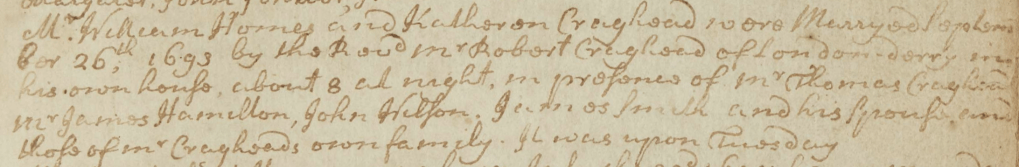 Mr. William Homes and Katheren Craghead were Marryed Septem
ber 26,th 1693 by the Revd mr Robert Craghead of London-derry in
his own house, about 8 at night, in presence of mr Thomas Craghead
mr James Hamillon, John Wilson, James Smith and his spouse, and
those of mr Cragheads own family. It was upon Tuesday